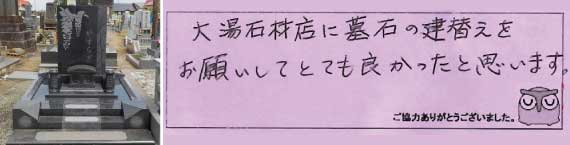 大湯石材店に墓石の建替えを
お願いしてとても良かったと思います。
ご協力ありがとうございました。